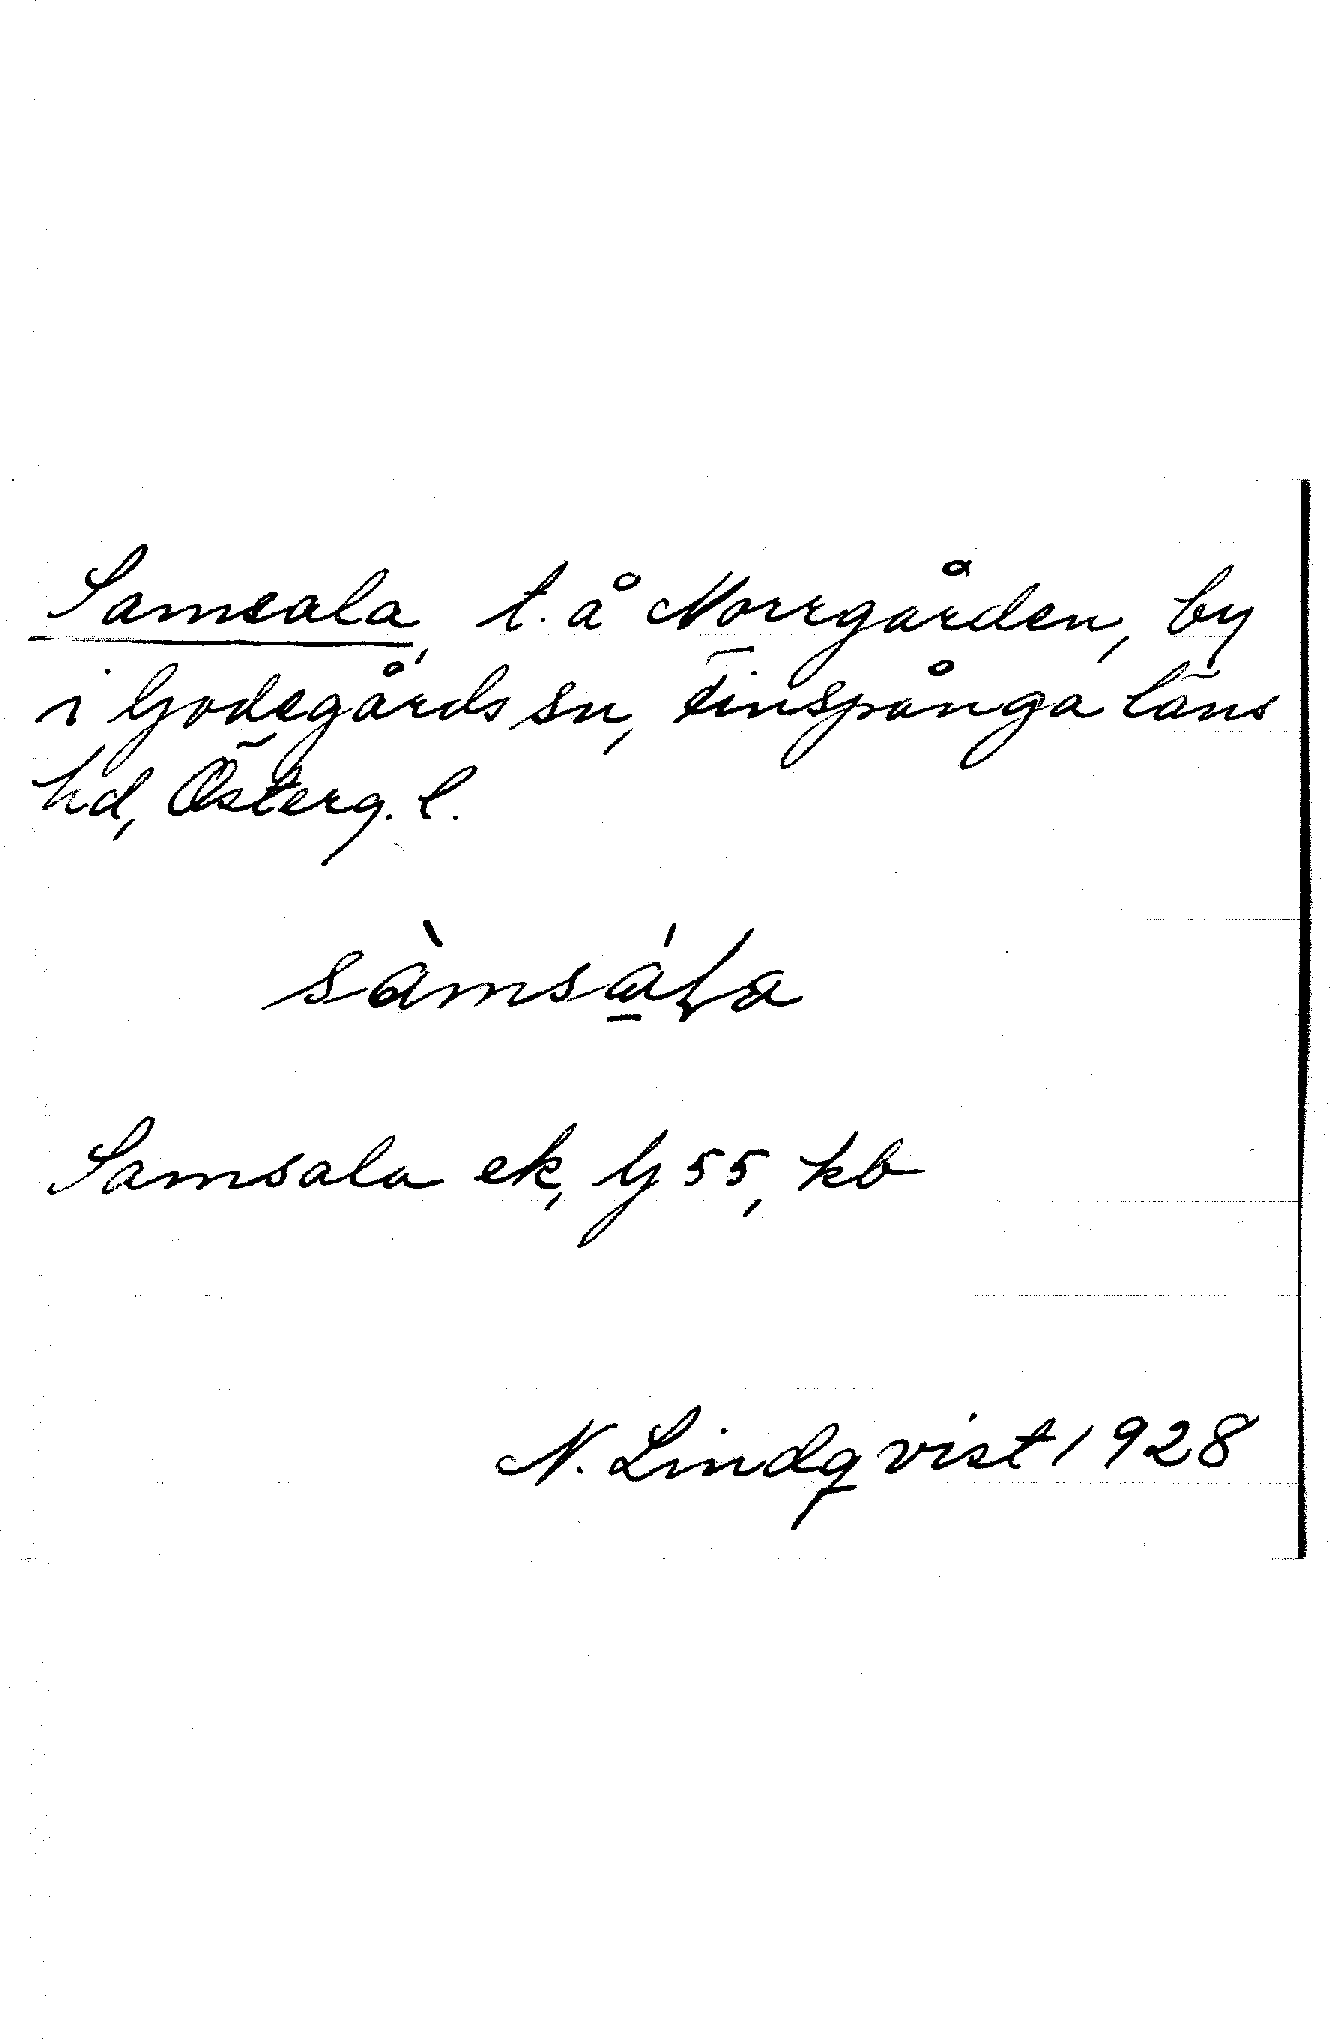 Samsala, t. å Norrgården, by
i Godegårds sn, Finspånga läns
hd, Österg. l.
sàmsá̱la
Samsala ek, G 55, kb
N. Lindqvist 1928